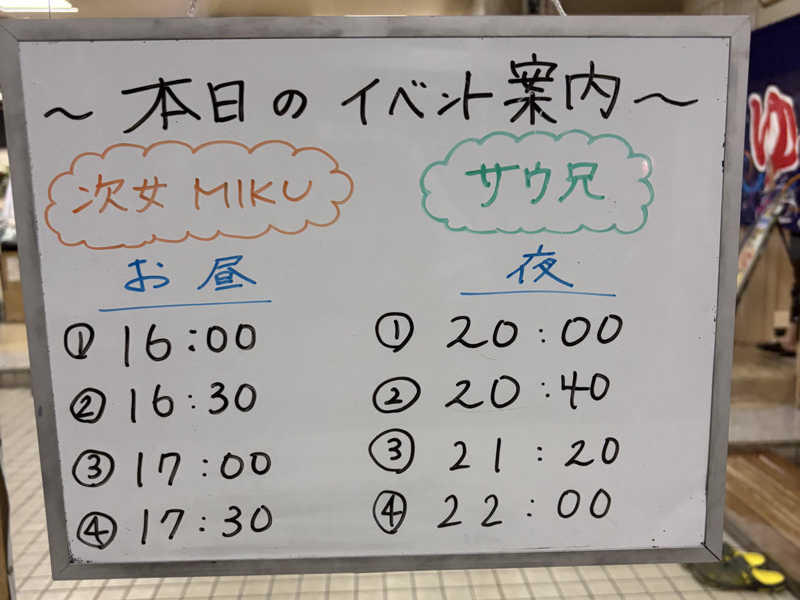 ～本日のイベント案内～
次女 MIKU
お昼
① 16:00
② 16:30
③ 17:00
④ 17:30
サウ兄
夜
① 20:00
② 20:40
③ 21:20
④ 22:00
ゆ